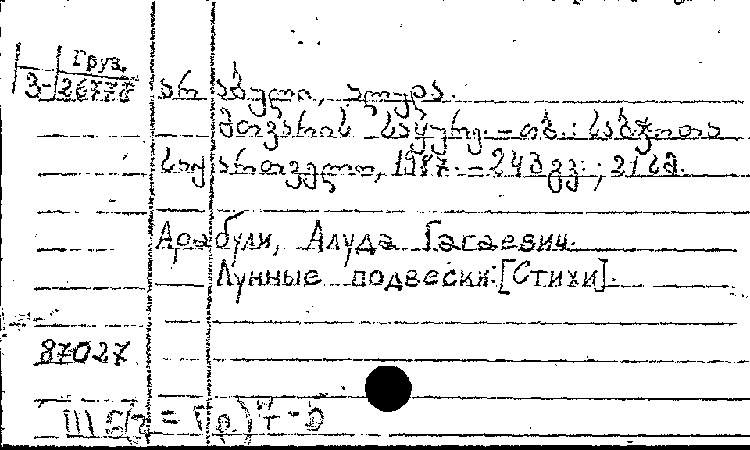 Груз.
3-26778
არაბული, ალუდა.
მთვარის საყურე. – თბ.: საბჭოთა
საქართველო, 1987. – 243 გვ.; 21 სმ.
Арабули, Алуда Гагаевич.
Лунные подвески: [Стихи].
87027